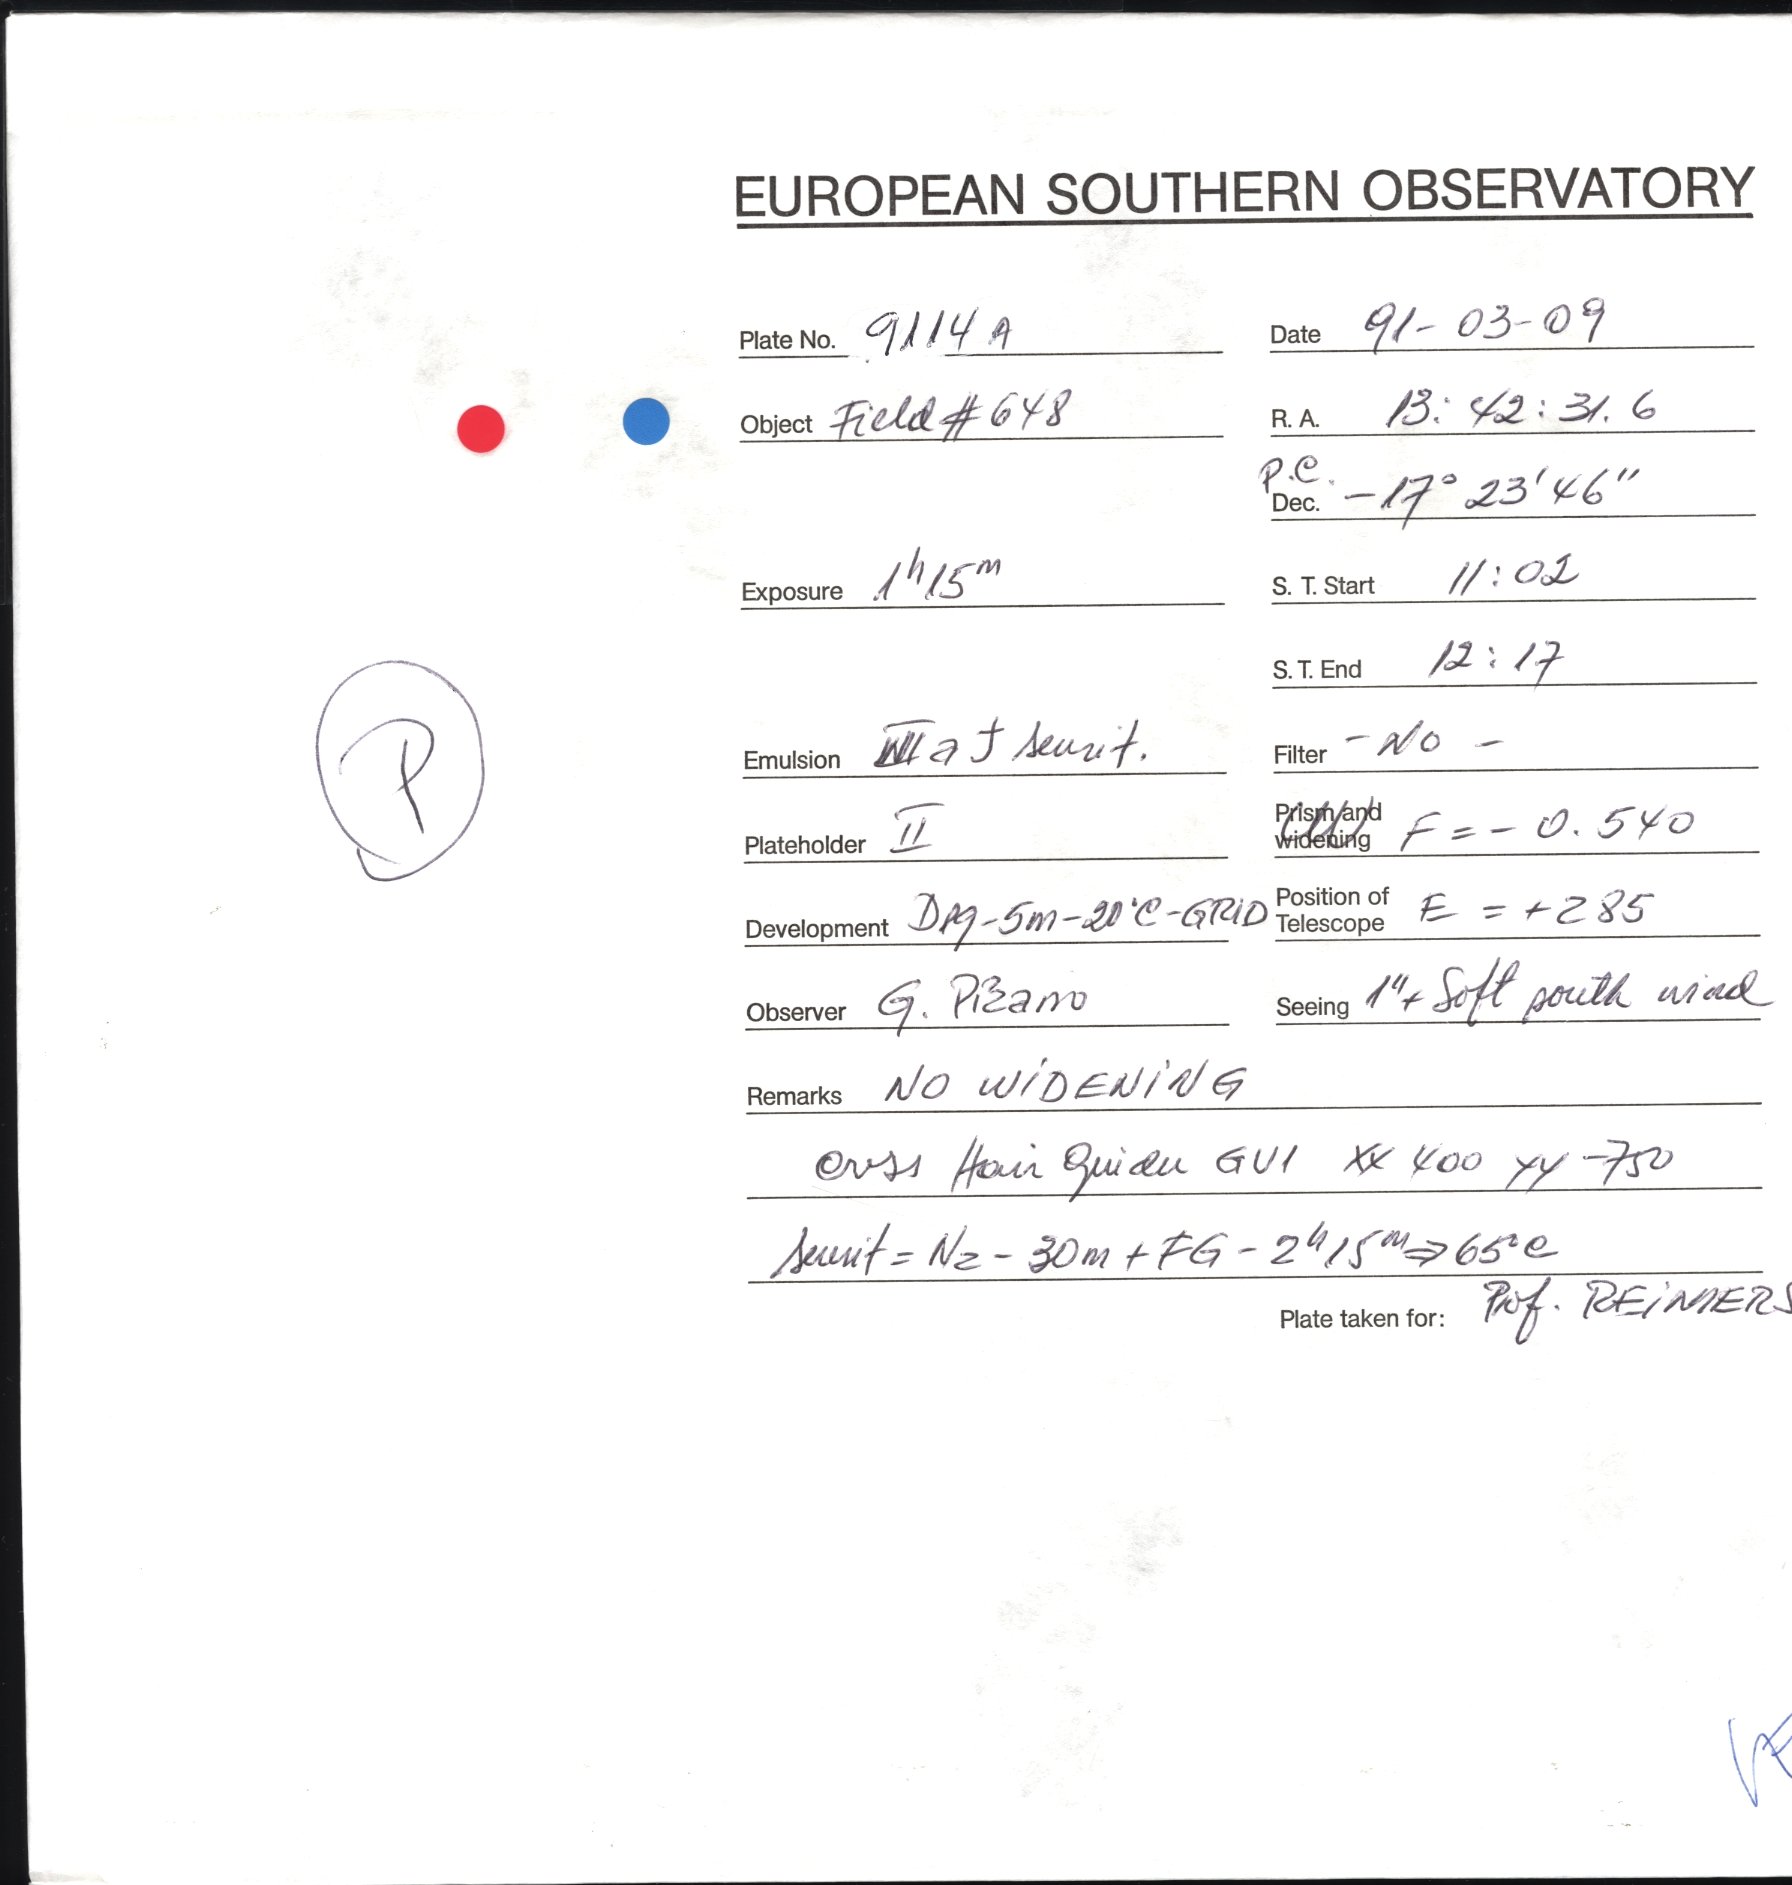 EUROPEAN SOUTHERN OBSERVATORY
Plate No. 9114 A Date 91-03-09
Object Field # 648 R. A. 13:42:31.6
P.C.
Dec. -17° 23' 46"
Exposure 1h 15m S. T. Start 11:02
S. T. End 12:17
Emulsion IIIaJ sensit. Filter - No -
Plateholder II Prism and widening F = - 0.540
Development D19-5m-20°C-GRID Position of Telescope E = +285
Observer G. Pizarro Seeing 1"+ Soft south wind
Remarks NO WIDENING
Cross Hair Guider GU1 XX 400 YY -750
Sensit = N2 - 30m + FG - 2h15m ⇒ 65°C
Plate taken for: Prof. REIMERS
P